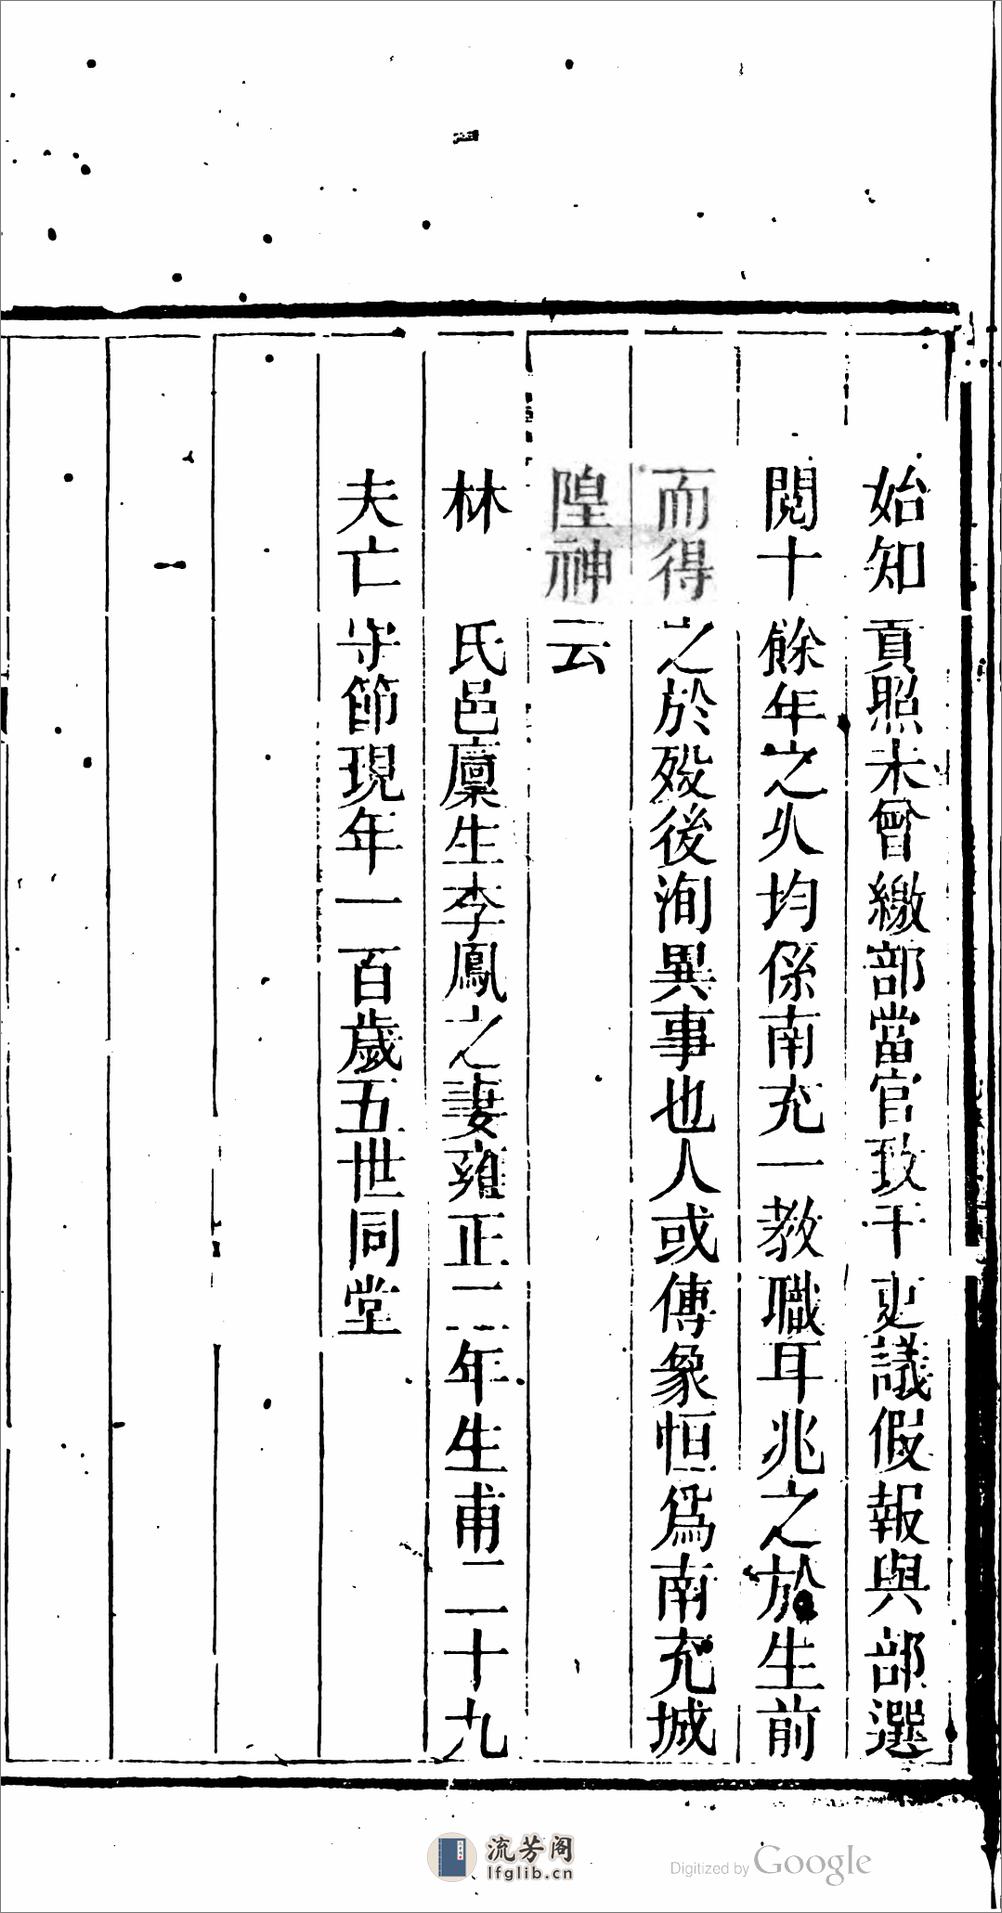 始知貢照未曾繳部當官致干吏議假報與部選
閱十餘年之久均係南充一教職耳兆之於生前
而得之於歿後洵異事也人或傳象恒爲南充城
隍神云
林氏邑廩生李鳳之妻雍正二年生甫二十九
夫亡守節現年一百歲五世同堂
流芳阁
lfglib.cn
Digitized by Google